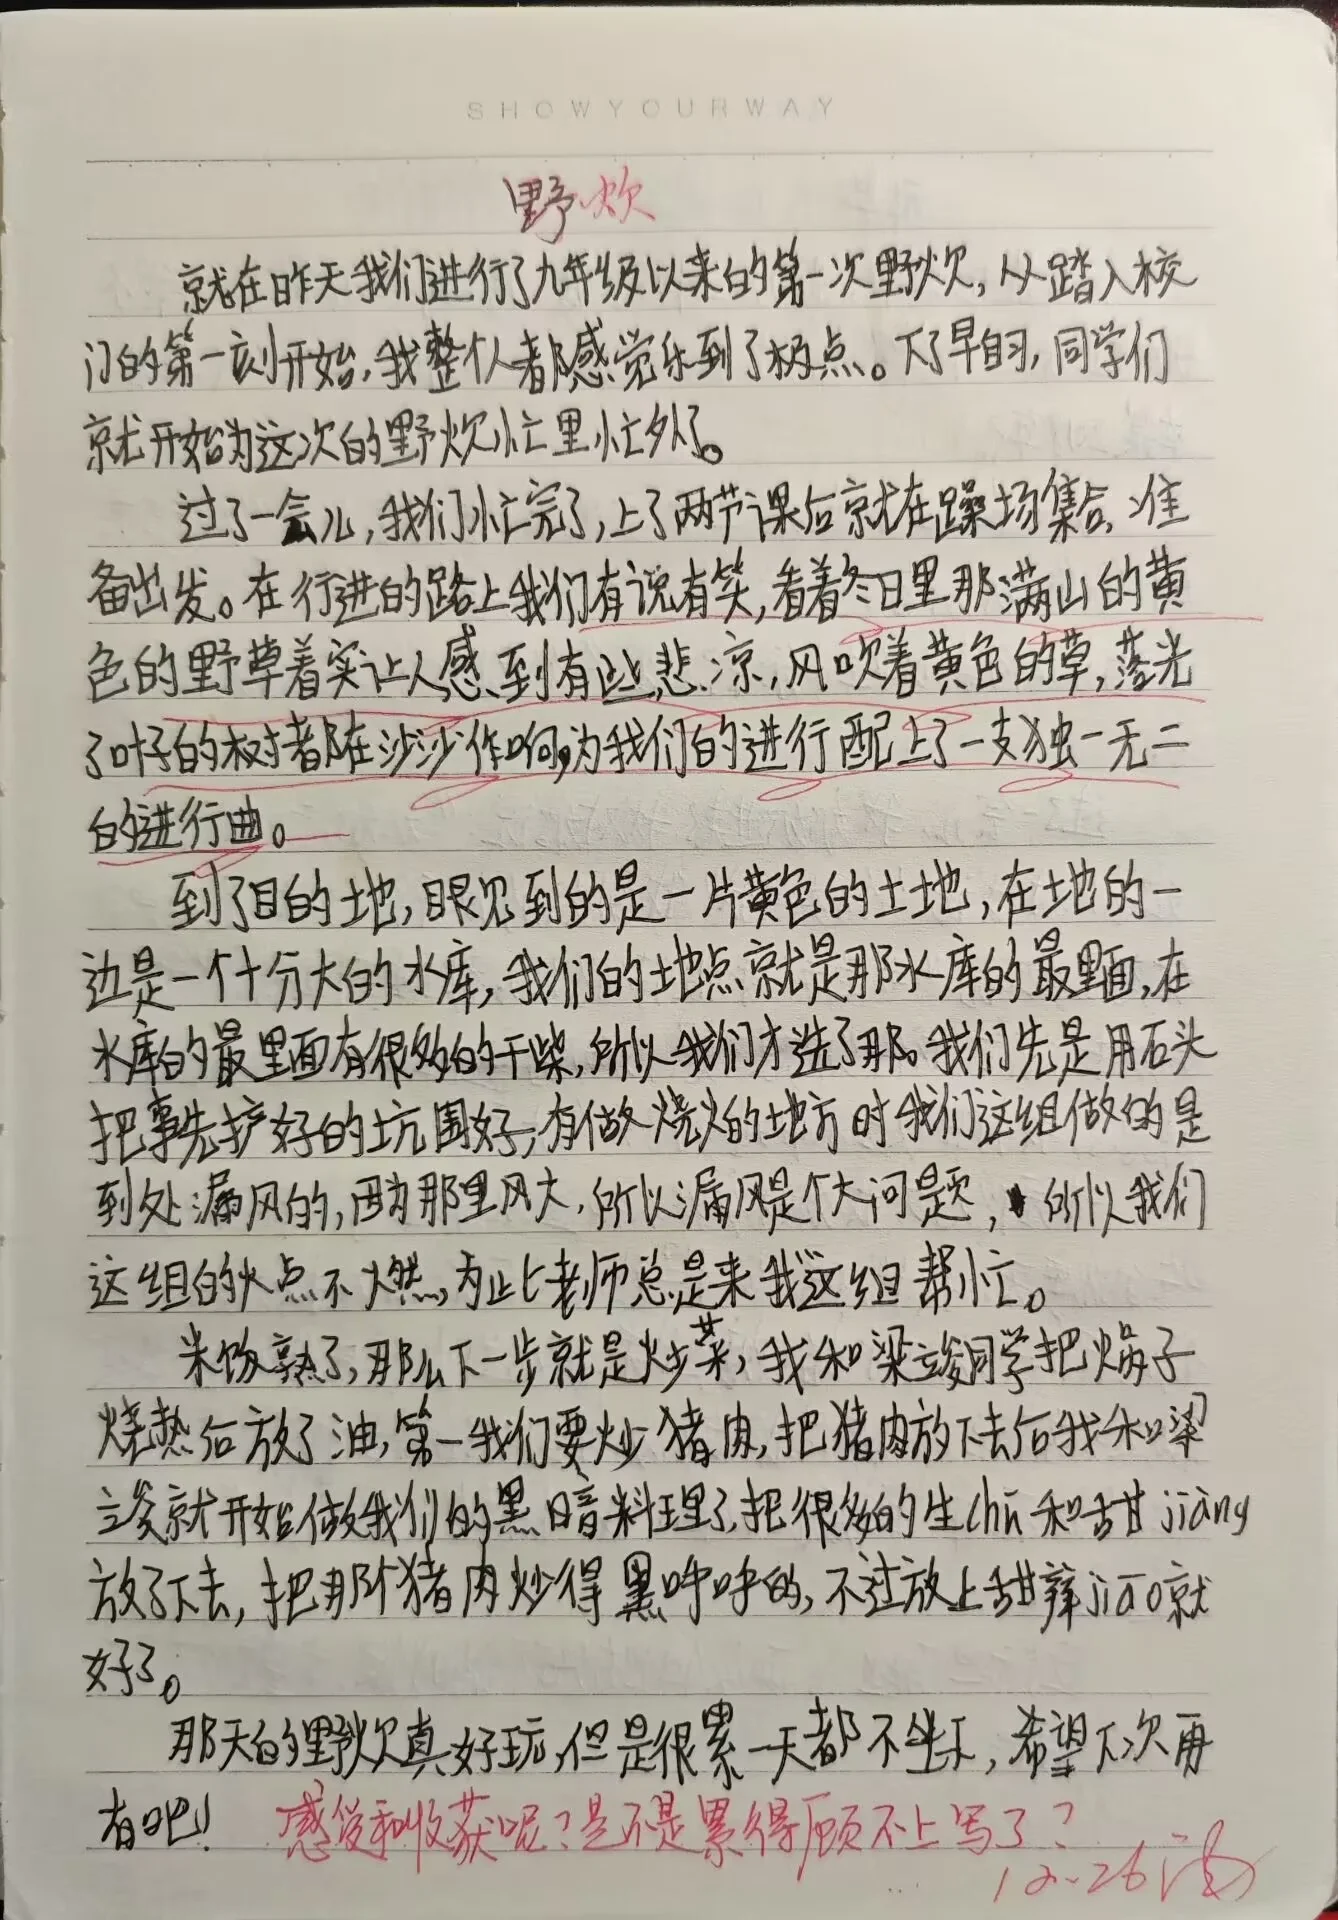 SHOWYOURWAY
野炊
就在昨天我们进行了九年级以来的第一次野炊,从踏入校
门的第一刻开始,我整个人都感觉乐到了极点。下了早自习,同学们
就开始为这次的野炊忙里忙外了。
过了一会儿,我们忙完了,上了两节课后就在躁场集合,准
备出发。在行进的路上我们有说有笑,看着冬日里那满山的黄
色的野草着实让人感到有些悲凉,风吹着黄色的草,落光
了叶子的树都在沙沙作响,为我们的进行配上了一支独一无二
的进行曲。
到了目的土地,眼见到的是一片黄色的土地,在地的一
边是一个十分大的水库,我们的地点就是那水库的最里面,在
水库的最里面有很多的干柴,所以我们才选了那。我们先是用石头
把事先护好的坑围好,有做烧火的地方时我们这组做的是
到处漏风的,因为那里风大,所以漏风是个大问题,所以我们
这组的火点不燃,为此老师总是来我这组帮忙。
米饭熟了,那么下一步就是炒菜,我和梁竣同学把焬子
烧热后放了油,第一我们要炒猪肉,把猪肉放下去后我和梁
竣就开始做我们的黑暗料理了,把很多的生chū和甜jiàng
放了下去,把那个猪肉炒得黑呼呼的,不过放上甜辣jiāo就
好了。
那天的野炊真好玩,但是很累一天都不坐下,希望下次再
有吧!
感受和收获呢?是不是累得顾不上写了?
12.26